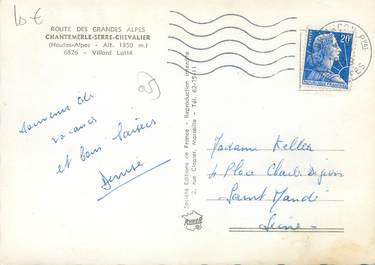 10 €
ROUTE DES GRANDES ALPES
CHANTEMERLE-SERRE-CHEVALIER
(Hautes-Alpes - Alt. 1350 m.)
6826 - Villard Latté
Souvenir de
vacances
et bons baisers
Denise
Société Editions de France - Reproduction interdite
2, rue Clapier, Marseille - Tél. 62-15-11
20F
Madame Keller
4 Place Charles Digeon
Saint Mandé
Seine